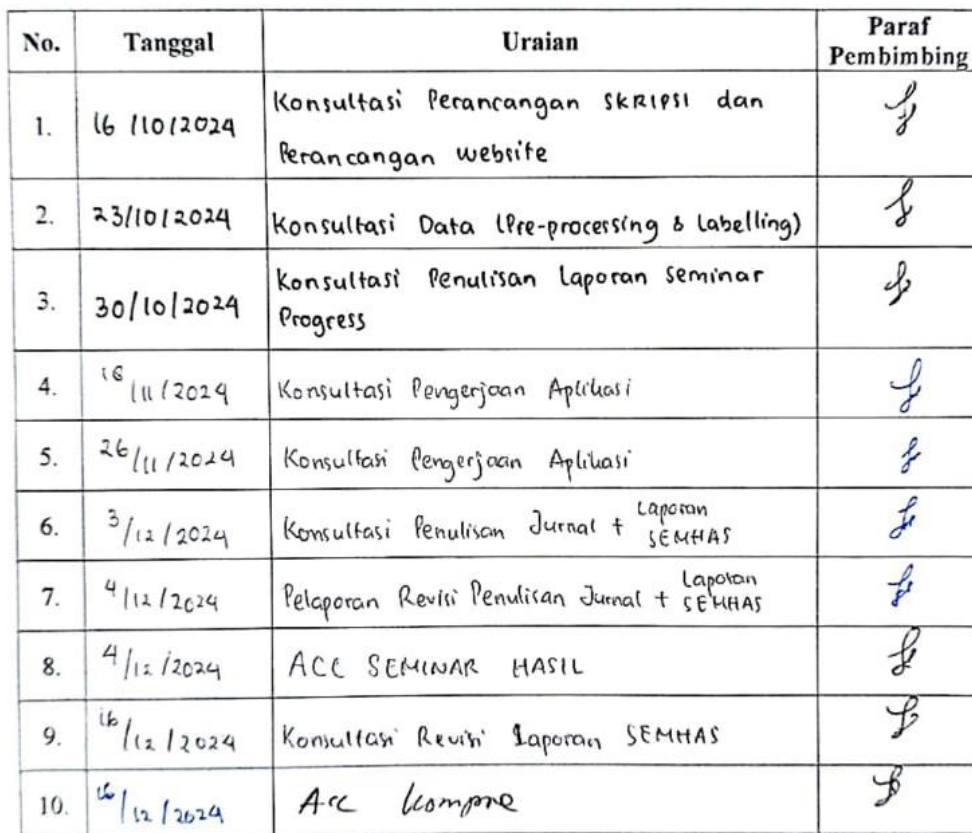 No. Tanggal Uraian Paraf Pembimbing
1. 16/10/2024 Konsultasi Perancangan SKRIPSI dan
Perancangan website
2. 23/10/2024 Konsultasi Data (Pre-processing & Labelling)
3. 30/10/2024 Konsultasi Penulisan Laporan Seminar
Progress
4. 18/11/2024 Konsultasi Pengerjaan Aplikasi
5. 26/11/2024 Konsultasi Pengerjaan Aplikasi
6. 3/12/2024 Konsultasi Penulisan Jurnal + Laporan SEMHAS
7. 4/12/2024 Pelaporan Revisi Penulisan Jurnal + Laporan SEMHAS
8. 4/12/2024 ACC SEMINAR HASIL
9. 16/12/2024 Konsultasi Revisi Laporan SEMHAS
10. 16/12/2024 Acc kompre